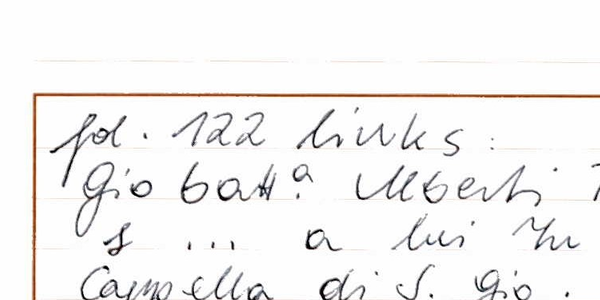 fol. 122 links:
Gio batt.a Alberti
s ... a lui
Cappella di S. Gio.